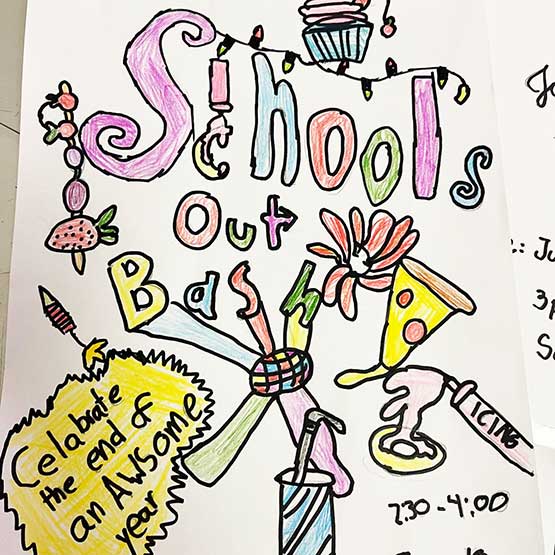 Schools
Out
Bash
Celabrate
the end of
an AWSome
year
ICING
2:30 - 4:00
3p